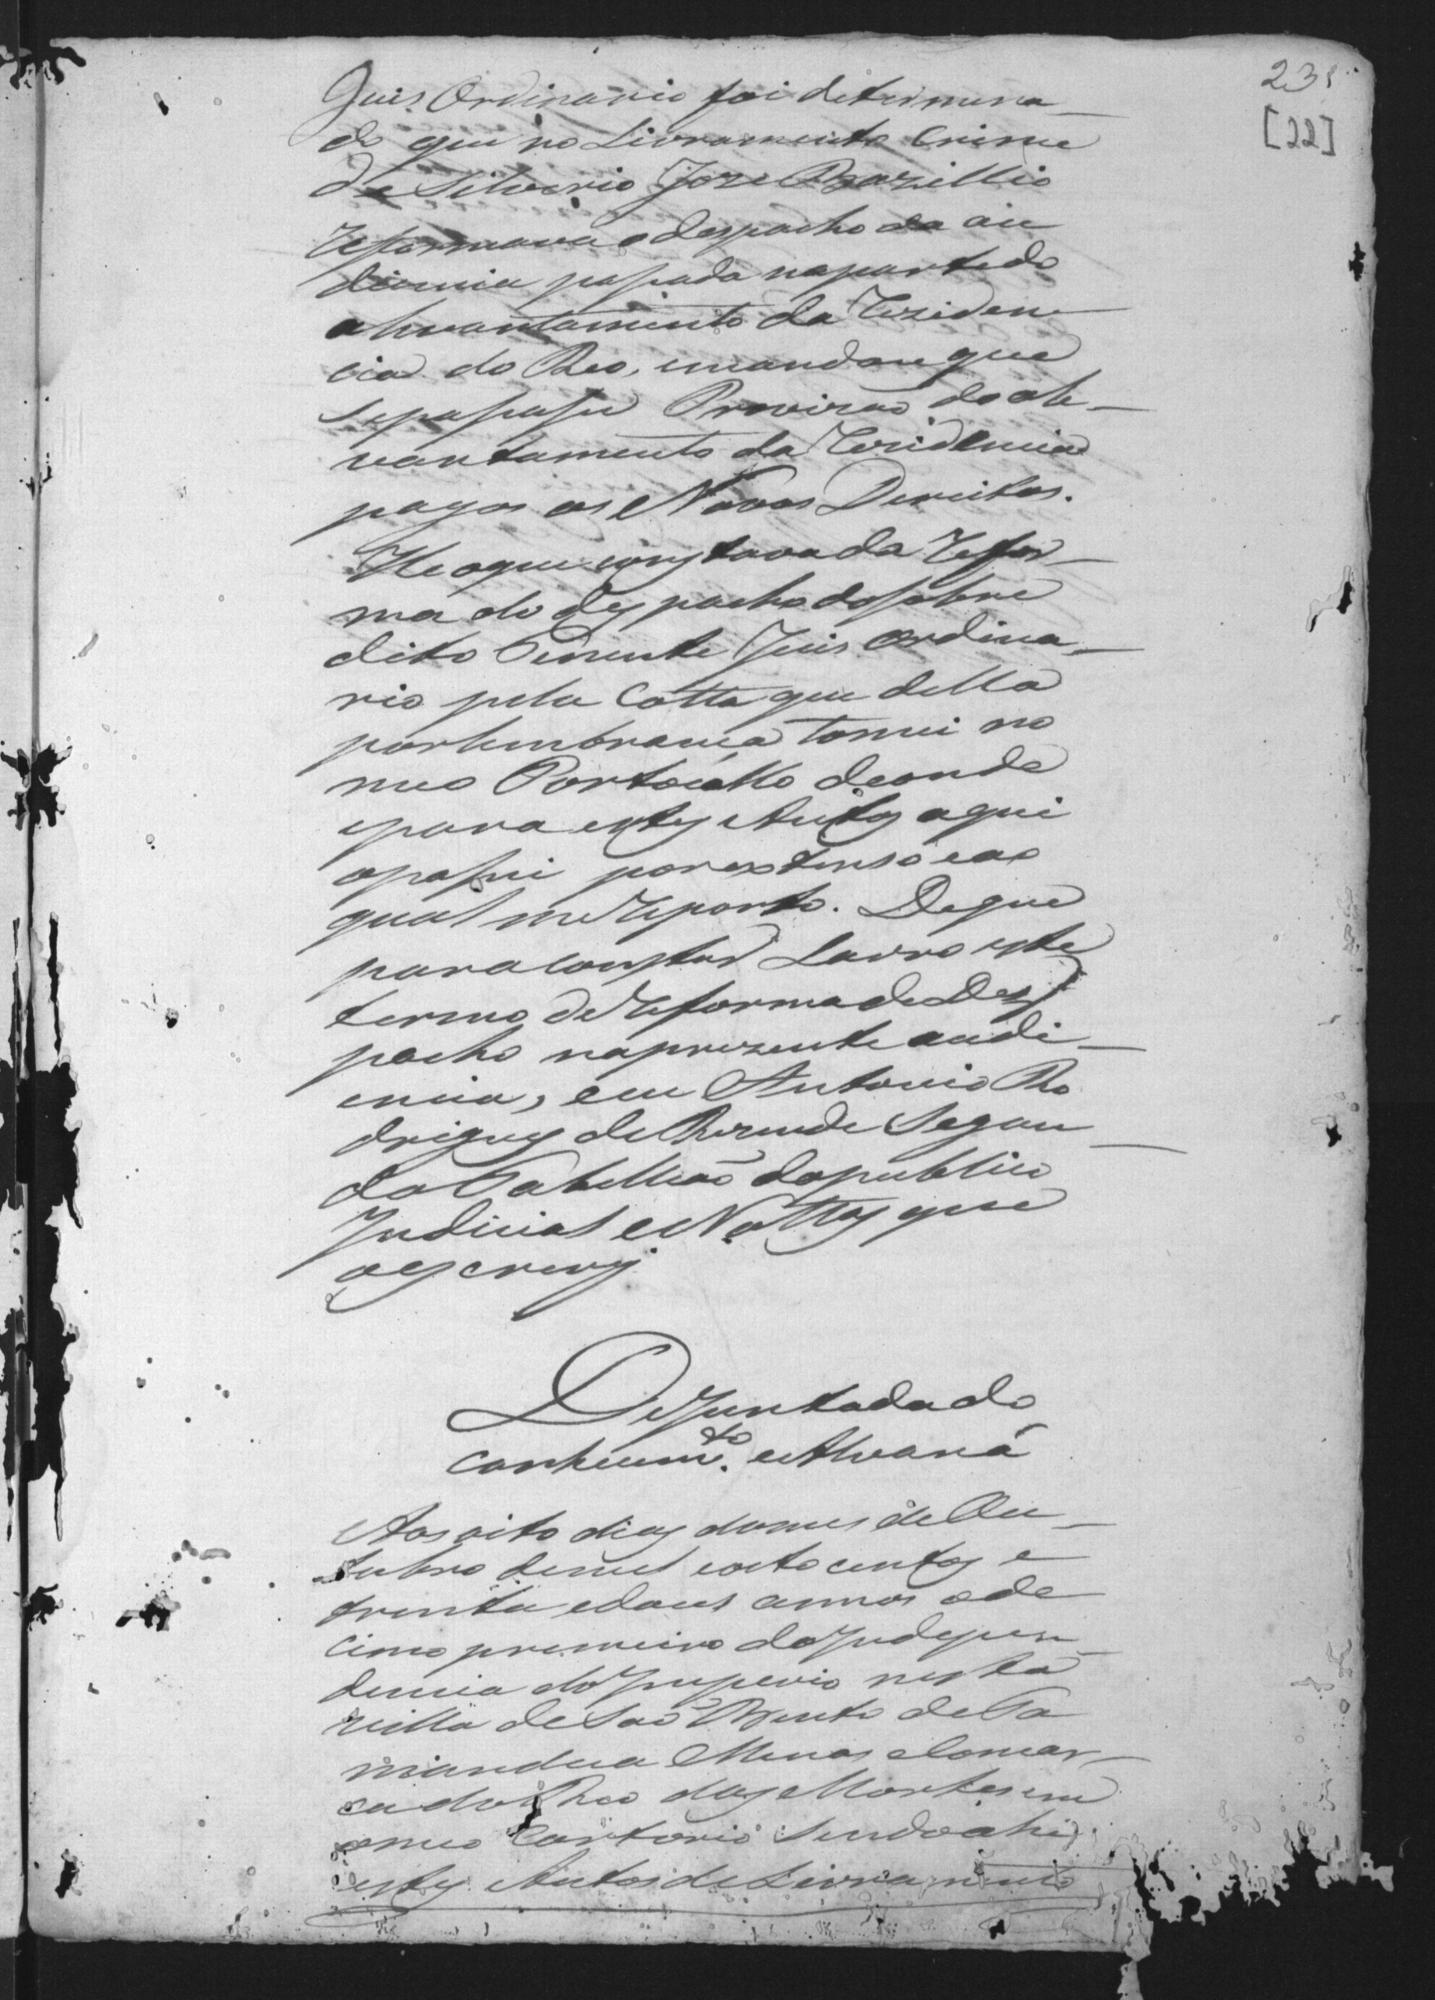 231
[22]
Juis Ordinario foi determina
do que no Livramento Crime
de Silverio Joze Bazillio
reformava o despacho da au
diencia passada naparte do
alevantamento da reziden
cia do Reo, emandou que
sepassasse Provizão do ale
vantamento da rezidencia
pagos os Novos Direitos.
He oque constava da refor
ma do despacho dosobre
dito Prezidente Juis Ordina
rio pela Cotta que della
porlembrança tomei no
meo Portocollo deonde
epara estes Autos aqui
apassei porextenso eao
qual me reporto. Deque
paraconstar Lavro este
termo de reforma de Des
pacho naprezente audi
encia, e eu Antonio Ro
drigues de Rezende Segun
do Taballião dopublico
Judicial e Nottas que
oescrevy
De Juntada do
conhecim.to e Alvará
Aos oito dias domes de Ou
tubro demil eoito centos e
trinta edous annos e de
cimo premeiro da Indepen
dencia do Imperio nesta
villa de Sao Bento de Ta
manduá Minas e Comar
ca do Rio das Mortes em
omeo Cartorio sendo ahi
estes Autos de Livramento